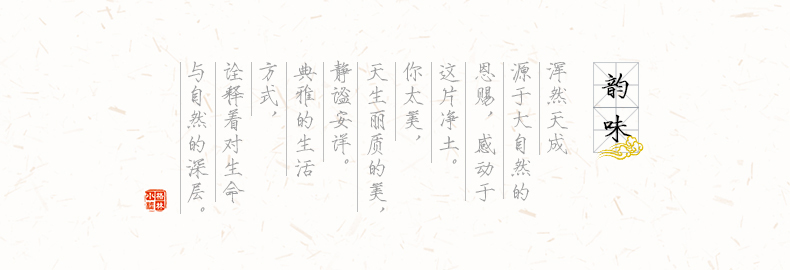 韵味
浑然天成
源于大自然的
恩赐，感动于
这片净土。
你太美，
天生丽质的美，
静谧安详。
典雅的生活
方式，
诠释着对生命
与自然的深层。